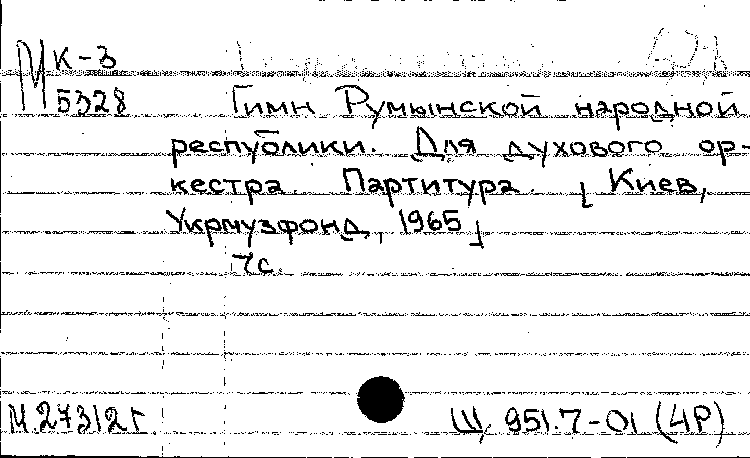 М К-3
5328
Гимн Румынской народной
республики. Для духового ор-
кестра. Партитура. [Киев,
Укрмузфонд, 1965]
7с.
М.27312г. Щ 951.7-01 (4Р)